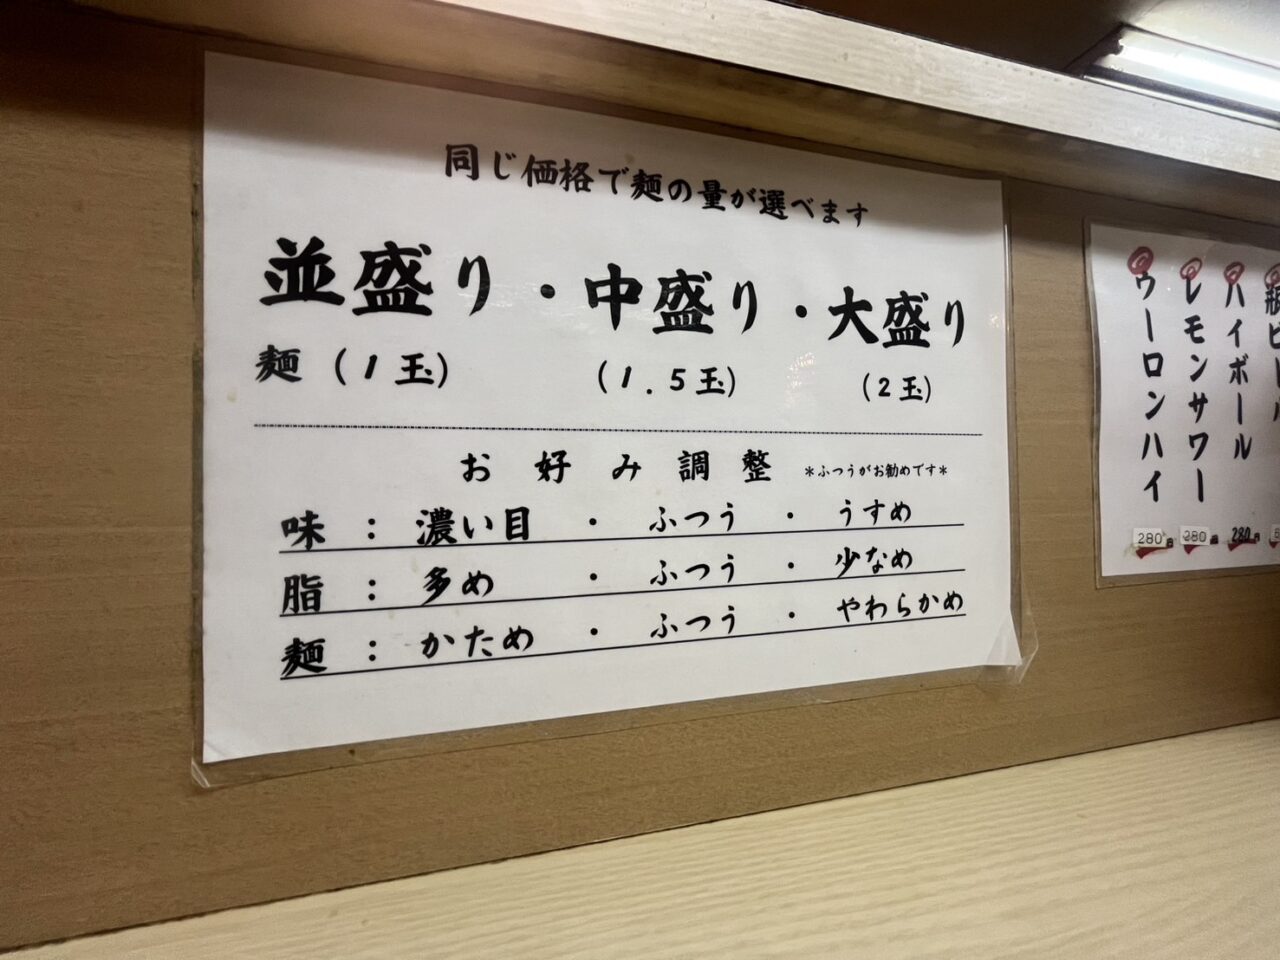 同じ価格で麺の量が選べます
並盛り・中盛り・大盛り
麺(1玉) (1.5玉) (2玉)
お好み調整 *ふつうがお勧めです*
味：濃い目・ふつう・うすめ
脂：多め・ふつう・少なめ
麺：かため・ふつう・やわらかめ
ウーロンハイ
280円
レモンサワー
280円
ハイボール
280円
瓶ビール